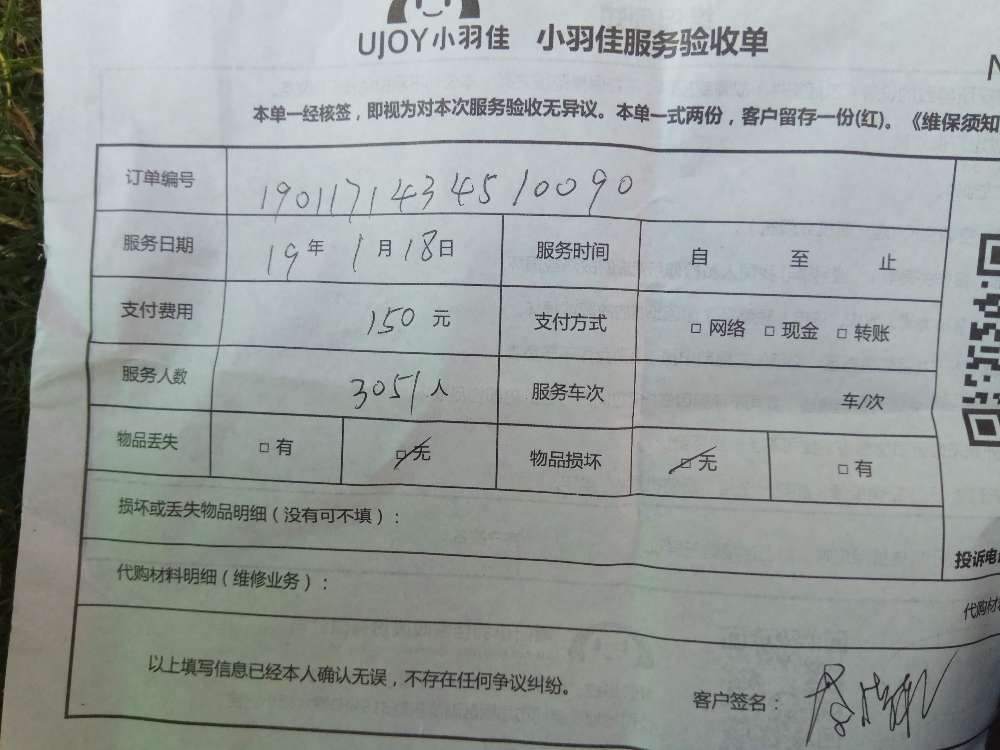 UJOY小羽佳 小羽佳服务验收单
N
本单一经核签，即视为对本次服务验收无异议。本单一式两份，客户留存一份(红)。《维保须知
订单编号 1901171434510090
服务日期 19年 1月18日 服务时间 自 至 止
支付费用 150元 支付方式 □ 网络 □ 现金 □ 转账
服务人数 3051人 服务车次 车/次
物品丢失 □ 有 □ 无 物品损坏 □ 无 □ 有
损坏或丢失物品明细（没有可不填）：
投诉电
代购材料明细（维修业务）：
代购材
以上填写信息已经本人确认无误，不存在任何争议纠纷。
客户签名：